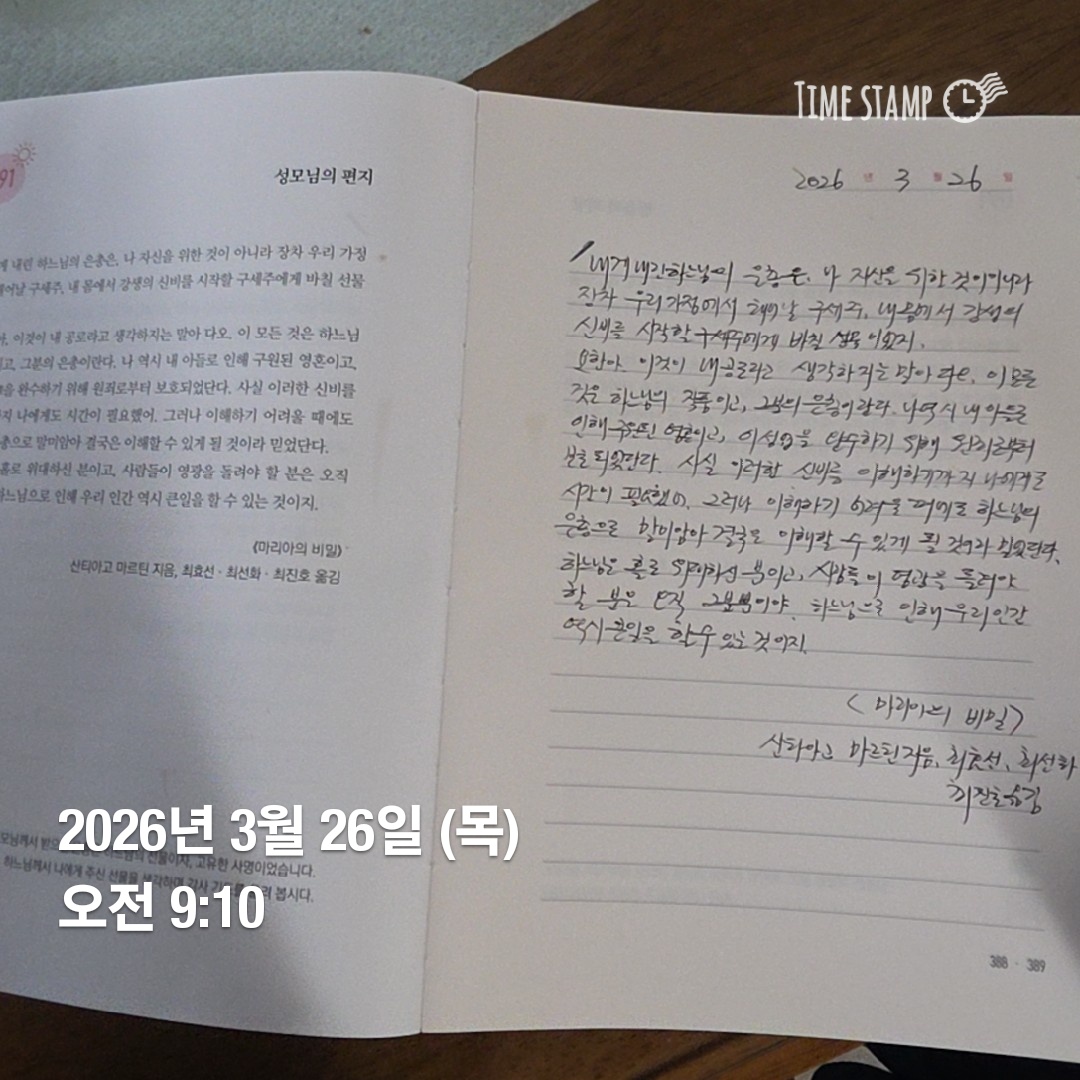 TIME STAMP
91
성모님의 편지
게 내린 하느님의 은총은, 나 자신을 위한 것이 아니라 장차 우리 가정
어날 구세주, 내 몸에서 강생의 신비를 시작할 구세주에게 바칠 선물
아, 이것이 내 공로라고 생각하지는 말아 다오. 이 모든 것은 하느님
고, 그분의 은총이란다. 나 역시 내 아들로 인해 구원된 영혼이고,
을 완수하기 위해 원죄로부터 보호되었단다. 사실 이러한 신비를
지 나에게도 시간이 필요했어. 그러나 이해하기 어려울 때에도
총으로 말미암아 결국은 이해할 수 있게 될 것이라 믿었단다.
홀로 위대하신 분이고, 사람들이 영광을 돌려야 할 분은 오직
하느님으로 인해 우리 인간 역시 큰일을 할 수 있는 것이지.
《마리아의 비밀》
산티아고 마르틴 지음, 최효선 · 최선화 · 최진호 옮김
모님께서 받으 하느님의 선물이자, 고유한 사명이었습니다.
하느님께서 나에게 주신 선물을 생각하며 감사 기도를 드려 봅시다.
2026 년 3 월 26 일
내게 내린 하느님의 은총은, 나 자신을 위한 것이 아니라
장차 우리 가정에서 태어날 구세주, 내 몸에서 강생의
신비를 시작할 구세주에게 바칠 선물이었지.
요한아, 이것이 내 공로라고 생각하지는 말아 다오. 이 모든
것은 하느님의 작품이고, 그분의 은총이란다. 나 역시 내 아들로
인해 구원된 영혼이고, 이 섭리를 완수하기 위해 원죄로부터
보호되었단다. 사실 이러한 신비를 이해하기까지 나에게도
시간이 필요했어. 그러나 이해하기 어려울 때에도 하느님의
은총으로 말미암아 결국은 이해할 수 있게 될 것이라 믿었단다.
하느님은 홀로 위대하신 분이고, 사람들이 영광을 돌려야
할 분은 오직 그분뿐이야. 하느님으로 인해 우리 인간
역시 큰일을 할 수 있는 것이지.
〈마리아의 비밀〉
산티아고 마르틴 지음, 최효선, 최선화
최진호 옮김
388 · 389
2026년 3월 26일 (목)
오전 9:10